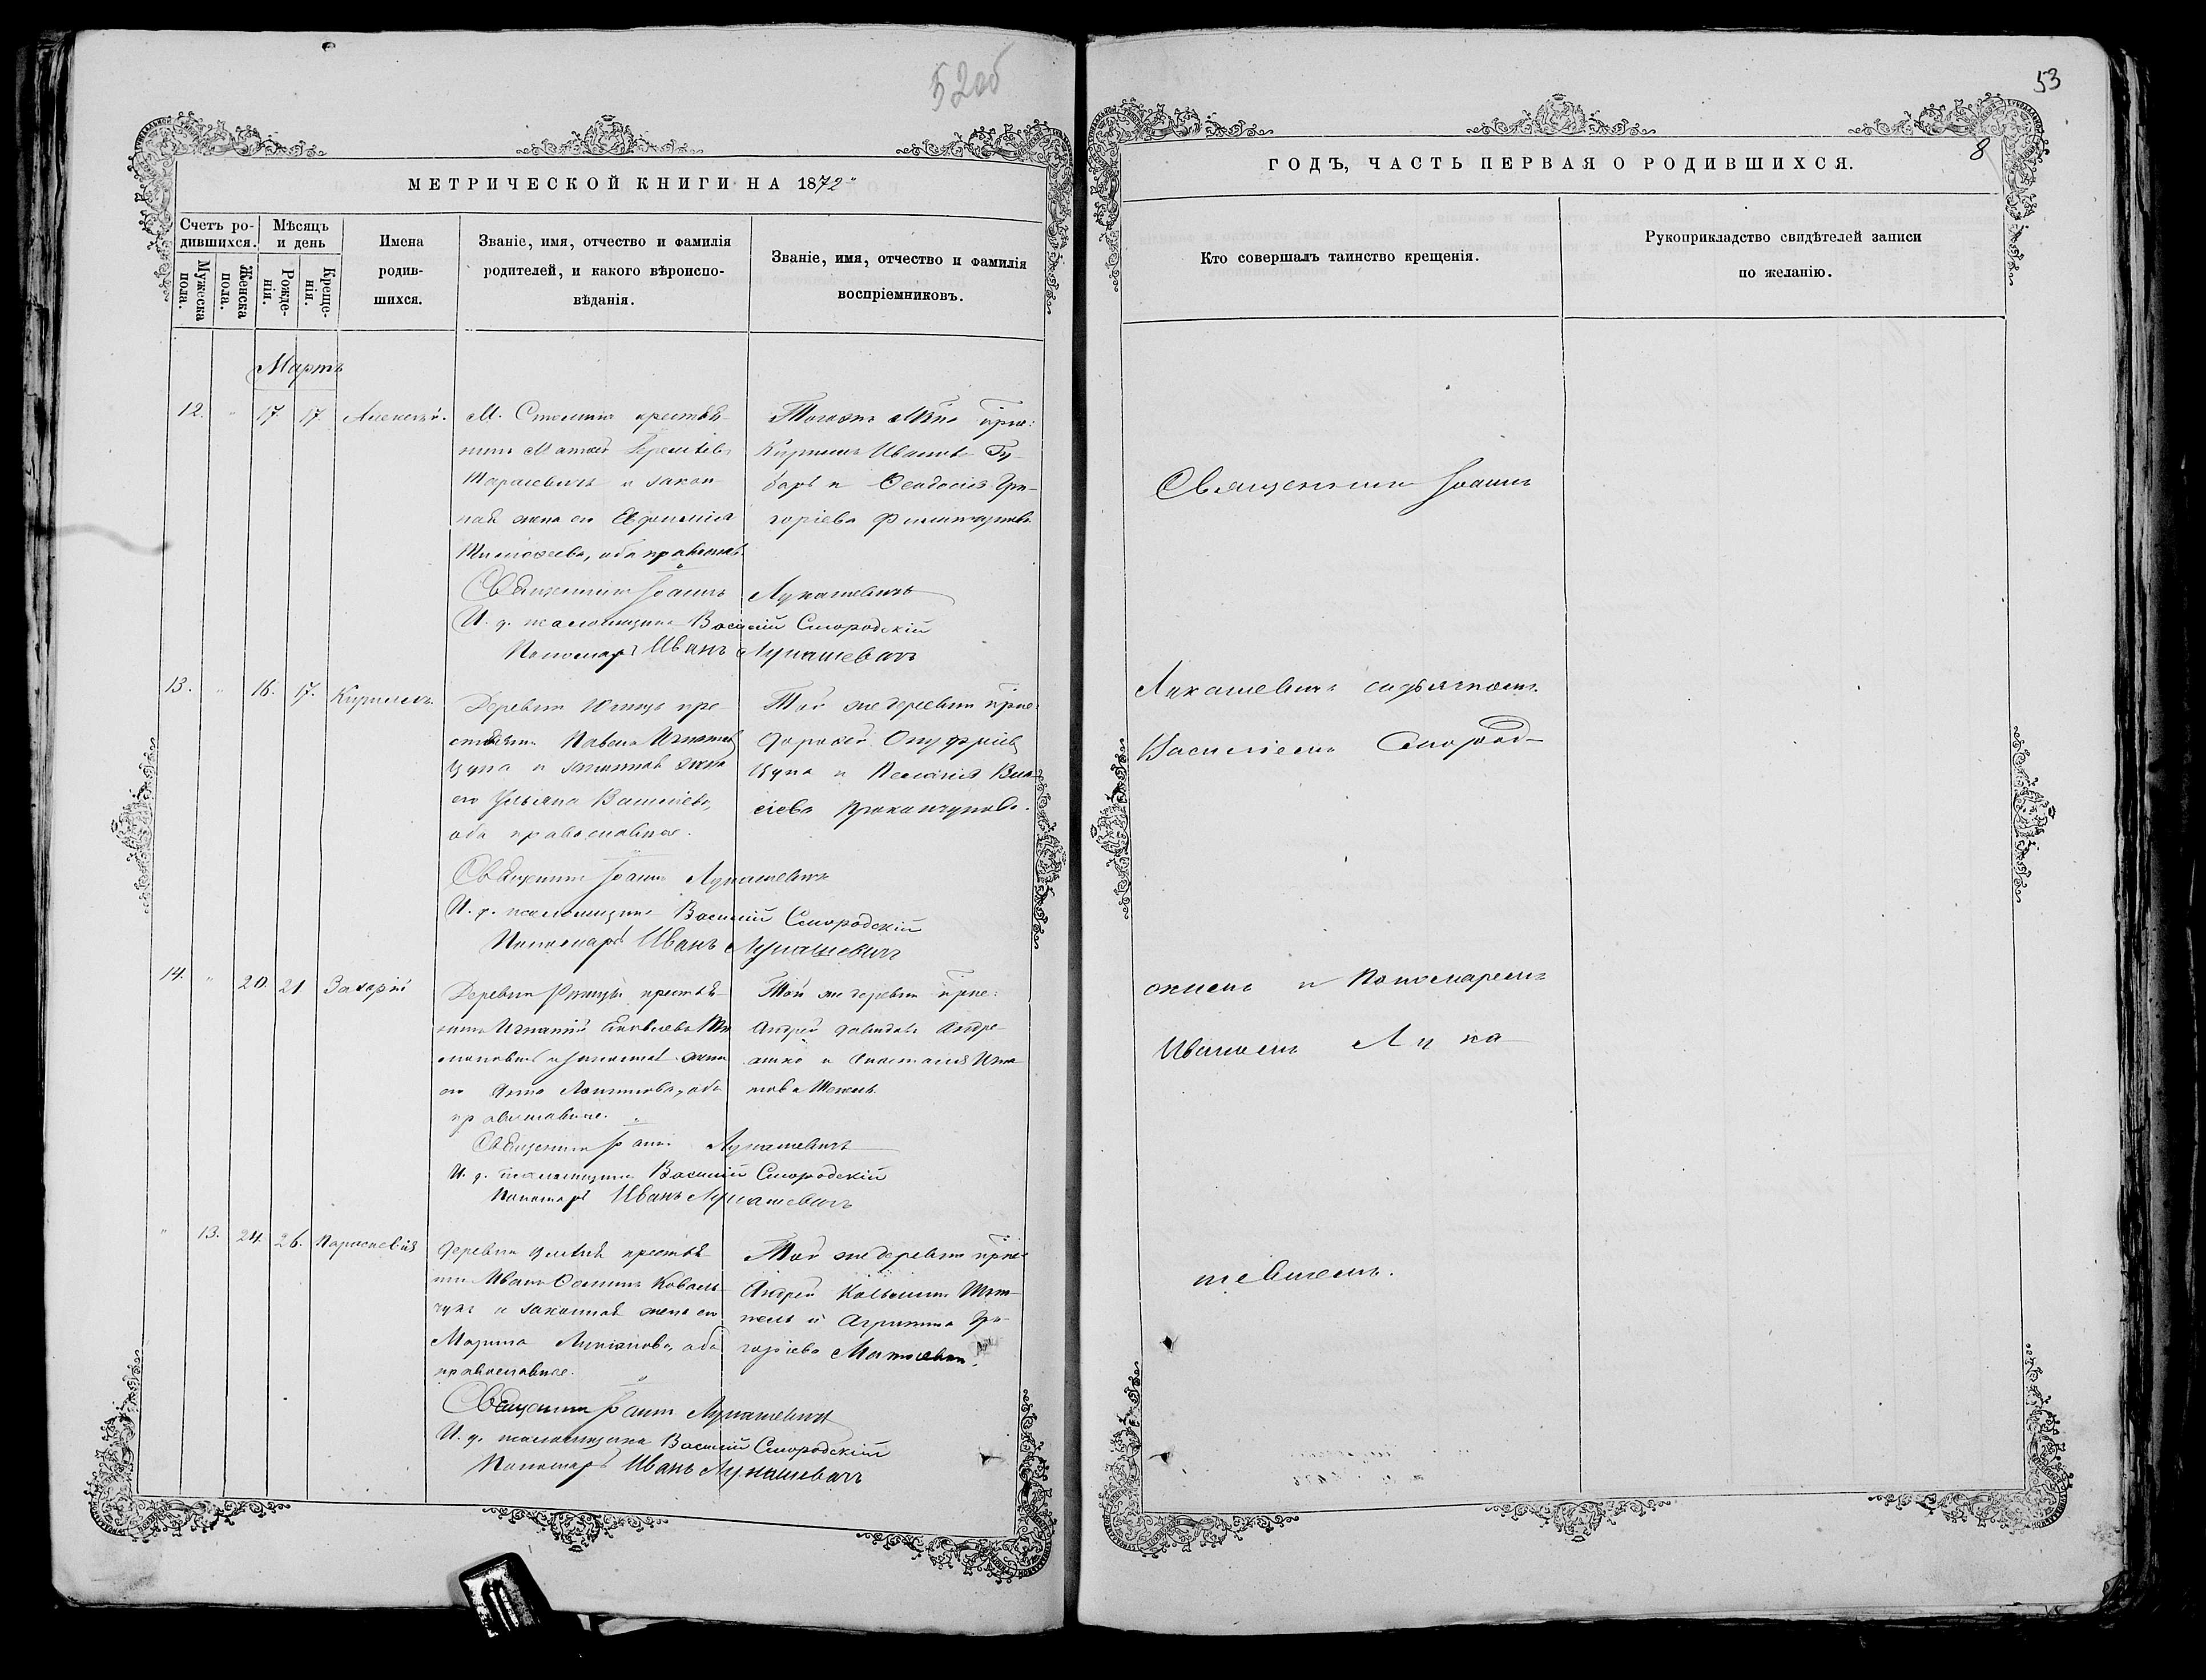 52об
МЕТРИЧЕСКОЙ КНИГИ НА 1872
Счетъ ро-
дившихся.
Мѣсяцъ
и день
Мужеска
пола.
Женска
пола.
Рожде-
нія.
Креще-
нія.
Имена
родив-
шихся.
Званіе, имя, отчество и фамилія
родителей, и какого вѣроиспо-
вѣданія.
Званіе, имя, отчество и фамилія
воспріемниковъ.
Мартъ
12. " 17. 17. Алексѣй.
М. Столина крестья-
нинъ Матѳей
и закон-
ная жена его Евфимія
Тимоѳеева, оба православ.
Тогожъ М. крес:
Кириллъ Ивановъ Гу-
барь и Ѳеодосія Гри-
горіева
Священникъ Іоаннъ Лукашевичъ
И. д. псаломщика Василій Смородскій
Пономарь Иванъ Лукашевичъ
13. " 16. 17. Кириллъ.
Деревни кре-
стьянинъ Павелъ Игнатіевъ
Цупа и законная жена
его Ульяна Василіева,
оба православные.
Той же деревни крес.
Дорофей Онуфріевъ
Цупа и Пелагія Вла-
сіева
Священникъ Іоаннъ Лукашевичъ
И. д. псаломщика Василій Смородскій
Пономарь Иванъ Лукашевичъ
14. " 20. 21 Захарій
Деревни крестья-
нинъ Игнатій Яковлевъ
и законная жена
его Анна оба
православные.
Той же деревни крес:
Андрей Давидовъ Андре-
юшко и Анастасія Игна-
това
Священникъ Іоаннъ Лукашевичъ
И. д. псаломщика Василій Смородскій
Пономарь Иванъ Лукашевичъ
" 13. 24. 26. Параскевія
Деревни крестья-
нинъ Иванъ Коваль-
чукъ и законная жена его
Марина Лукіянова, оба
православные.
Той же деревни крес:
Андрей
и Агрипина Гри-
горіева
Священникъ Іоаннъ Лукашевичъ
И. д. псаломщика Василій Смородскій
Пономарь Иванъ Лукашевичъ
53
8
ГОДЪ, ЧАСТЬ ПЕРВАЯ О РОДИВШИХСЯ.
Кто совершалъ таинство крещенія.
Рукоприкладство свидѣтелей записи
по желанію.
Священникъ Іоаннъ
Лукашевичъ съ дьячкомъ
Василіемъ Смород-
скимъ и Пономаремъ
Иваномъ Лука-
шевичемъ.